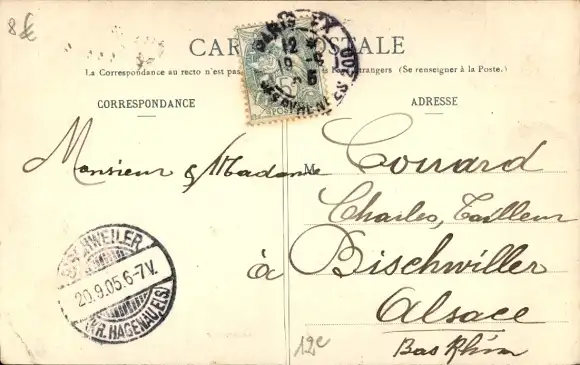 8€
CARTE POSTALE
La Correspondance au recto n'est pas
Étrangers (Se renseigner à la Poste.)
CORRESPONDANCE
ADRESSE
PARIS
12
19
5
POSTES
Monsieur & Madame
M
Conrard
Charles, Tailleur
à Bischwiller
Alsace
Bas Rhin
BISCHWEILER
20.9.05.6-7V.
(KR. HAGENAU, ELS.)
12€